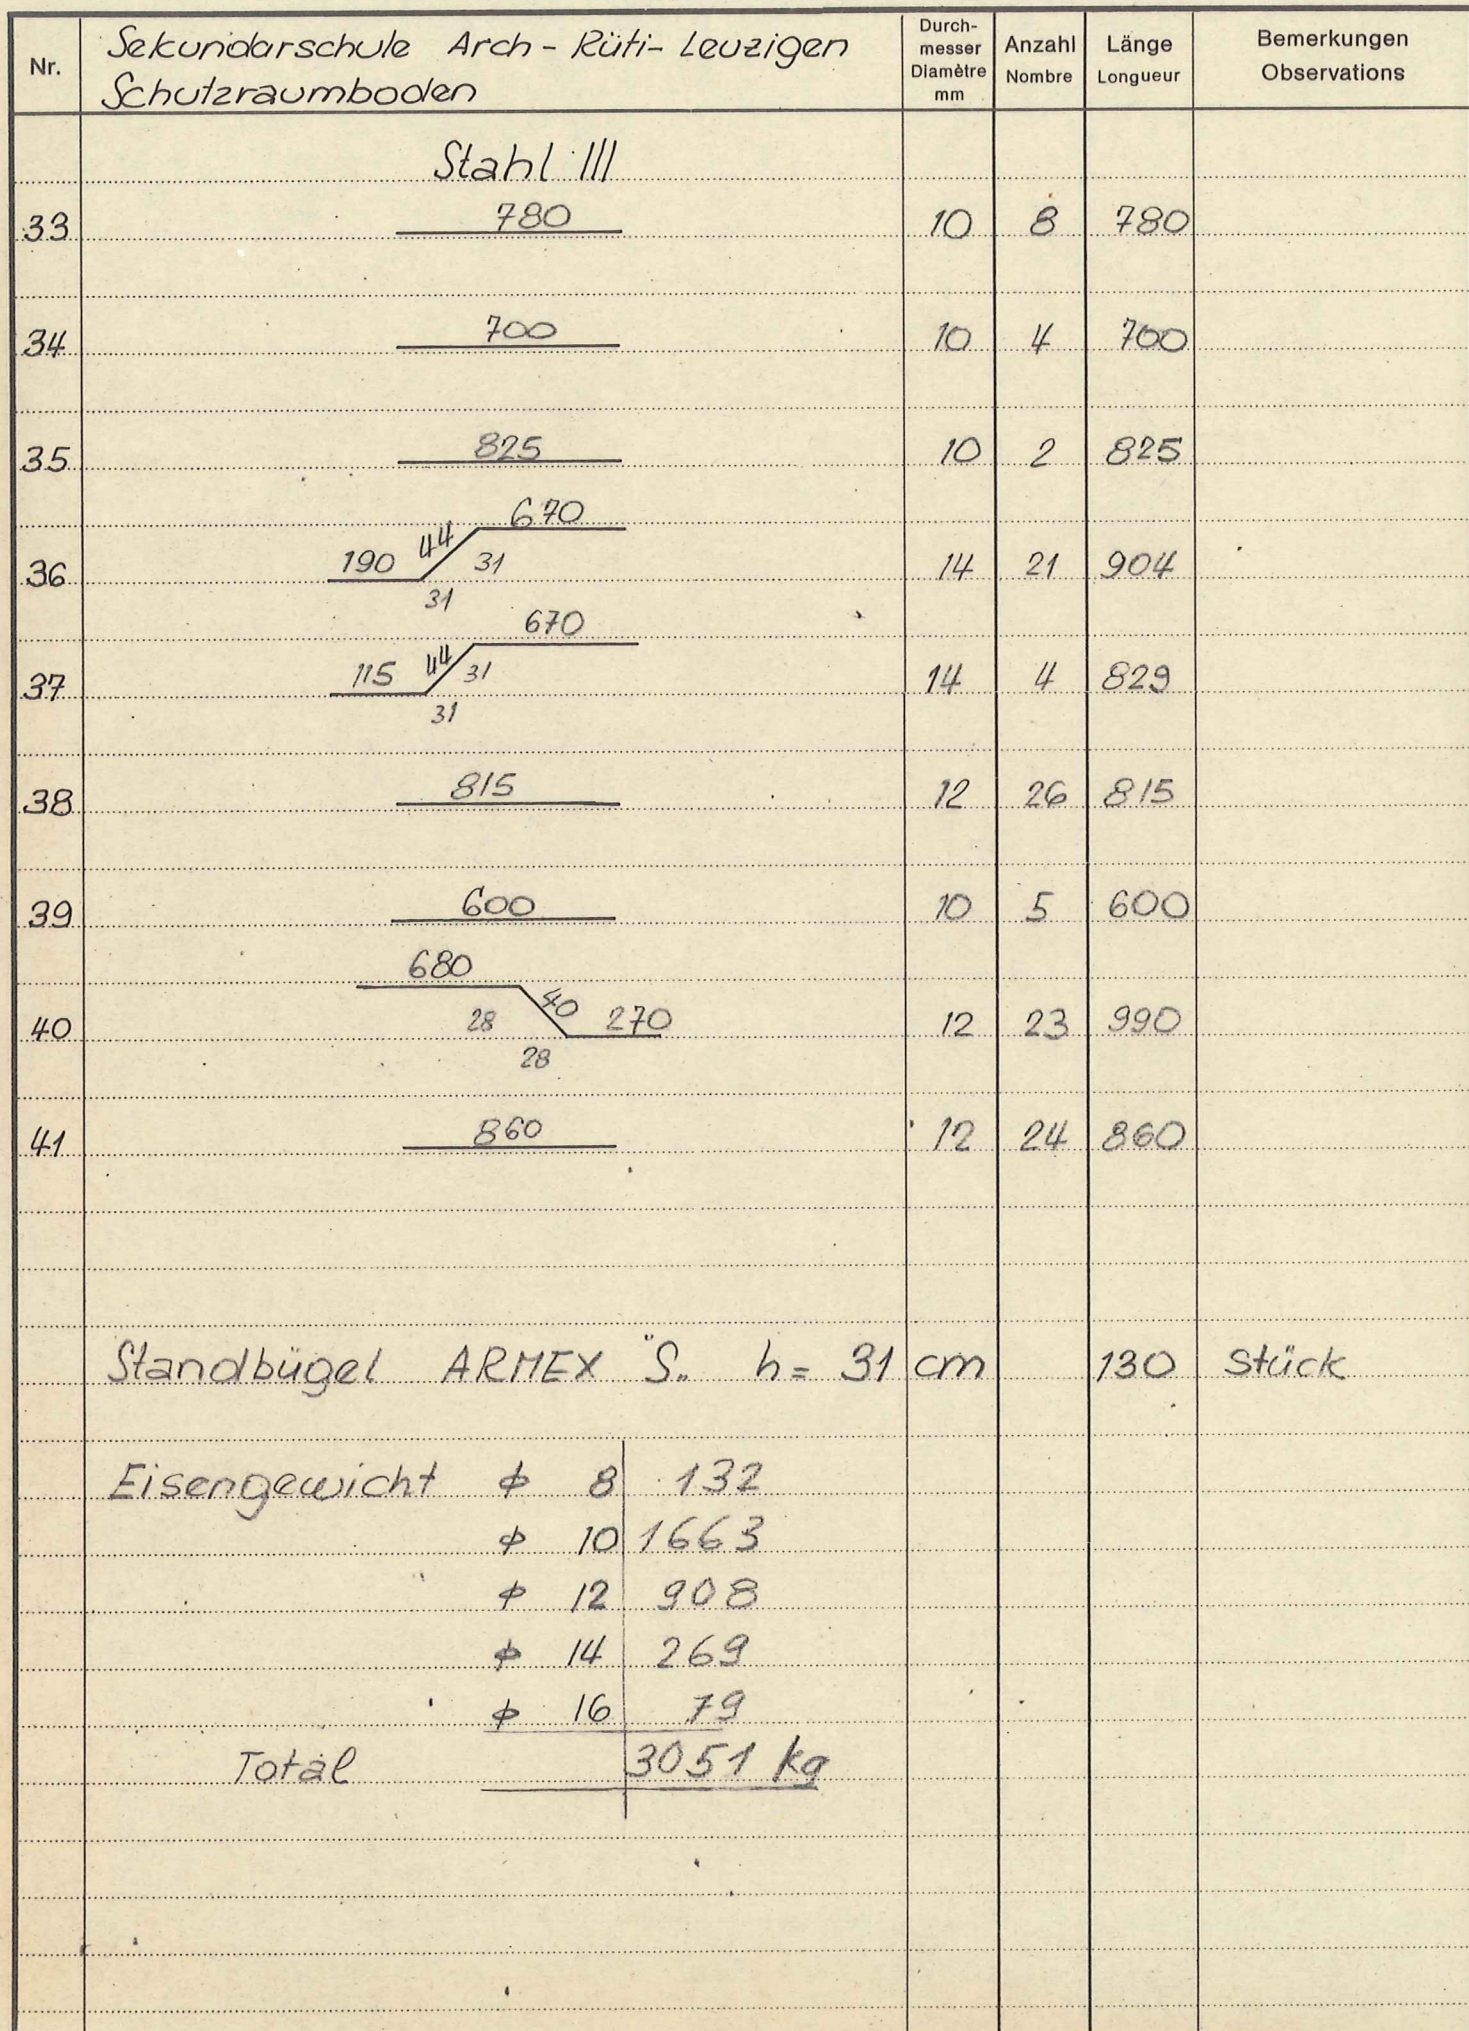 Nr.
Sekundarschule Arch - Rüti - Leuzigen
Schutzraumboden
Durch-
messer
Diamètre
mm
Anzahl
Nombre
Länge
Longueur
Bemerkungen
Observations
Stahl III
33 780 10 8 780
34 700 10 4 700
35 825 10 2 825
670
36 190 44 31 14 21 904
31
670
37 115 44 31 14 4 829
31
38 815 12 26 815
39 600 10 5 600
680
40 28 40 270 12 23 990
28
41 860 12 24 860
Standbügel ARMEX "S„ h = 31 cm 130 Stück
Eisengewicht ϕ 8 132
ϕ 10 1663
ϕ 12 908
ϕ 14 269
ϕ 16 79
Total 3051 kg